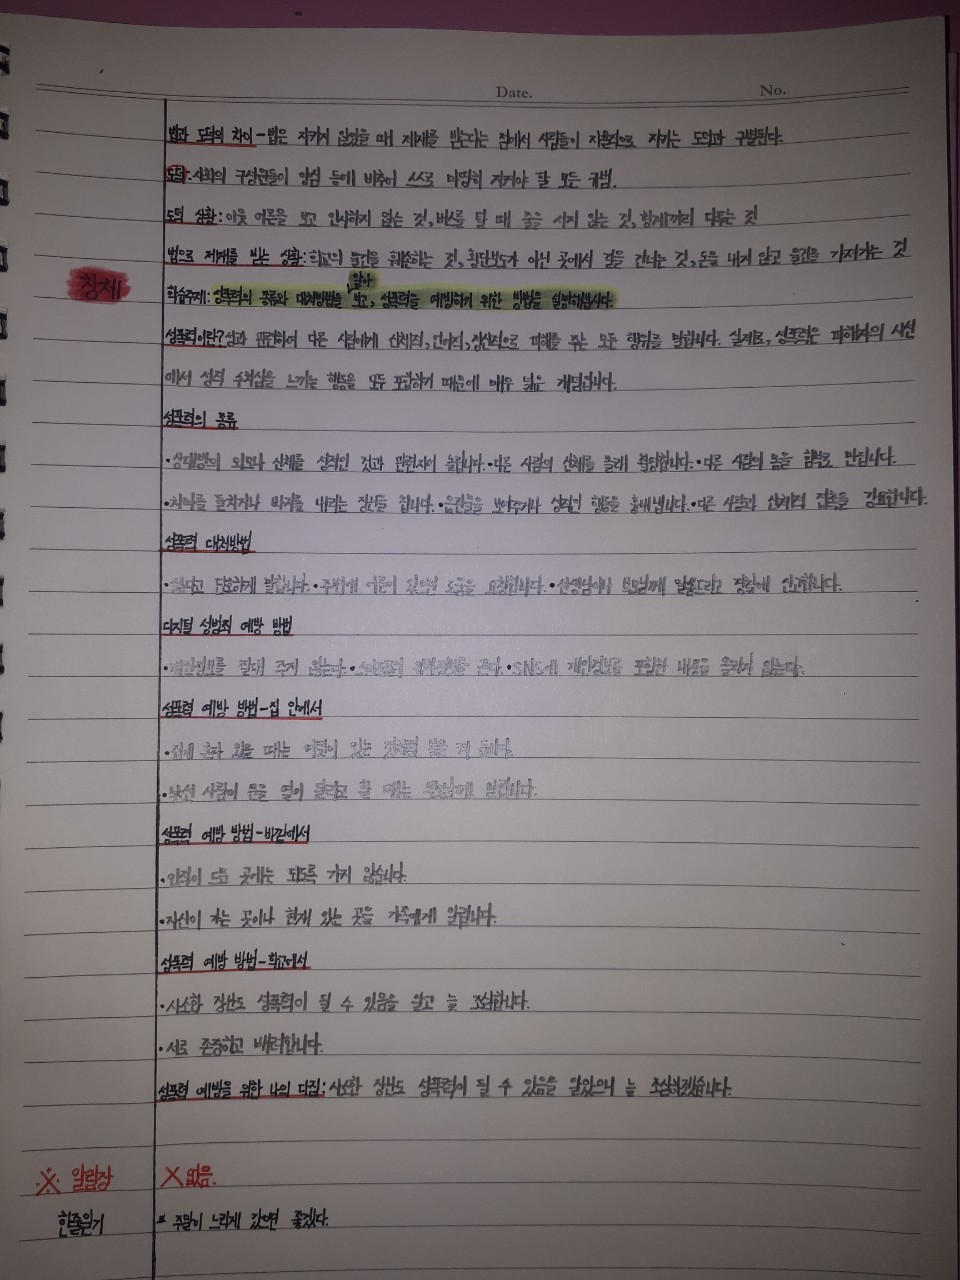 Date. No.
법과 도덕의 차이-법은 지키지 않았을 때 제재를 받는다는 점에서 사람들이 자율적으로 지키는 도덕과 구별된다.
도덕:사회의 구성원들이 양심 등에 비추어 스스로 마땅히 지켜야 할 모든 규범.
도덕 상황:이웃 어른을 보고 인사하지 않는 것,버스를 탈 때 줄을 서지 않는 것,형제끼리 다투는 것
법으로 제재를 받는 상황:학교의 물건을 훼손하는 것,횡단보도가 아닌 곳에서 길을 건너는 것,돈을 내지 않고 물건을 가져가는 것
창체
알아
학습주제:성폭력의 종류와 대처방법을 보고, 성폭력을 예방하기 위한 방법을 실천해봅시다.
성폭력이란?성과 관련하여 다른 사람에게 신체적,언어적,정신적으로 피해를 주는 모든 행위를 말합니다. 실제로, 성폭력은 피해자의 시선
에서 성적 수치심을 느끼는 행동을 모두 포함하기 때문에 매우 넓은 개념입니다.
성폭력의 종류
•상대방의 외모나 신체를 성적인 것과 관련지어 놀립니다.•다른 사람의 신체를 몰래 촬영합니다.•다른 사람의 몸을 함부로 만집니다.
•치마를 들치거나 바지를 내리는 장난을 칩니다.•음란물을 보여주거나 성적인 행동을 흉내냅니다.•다른 사람과 신체적 접촉을 강요합니다.
성폭력 대처방법
•싫다고 단호하게 말합니다.•주위에 어른이 있으면 도움을 요청합니다.•선생님이나 부모님께 말씀드리고 경찰에 신고합니다.
디지털 성범죄 예방 방법
•개인정보를 절대 주지 않는다.• 끈다.•SNS에 개인정보를 포함한 내용을 올리지 않는다.
성폭력 예방 방법-집 안에서
•집에 혼자 있을 때는 어른이 있는 것처럼 불을 켜 둔다.
•낯선 사람이 문을 열어 달라고 할 때는 부모님께 알립니다.
성폭력 예방 방법-바깥에서
•인적이 드문 곳에는 되도록 가지 않습니다.
•자신이 가는 곳이나 현재 있는 곳을 가족에게 알립니다.
성폭력 예방 방법-학교에서
•사소한 장난도 성폭력이 될 수 있음을 알고 늘 조심합니다.
•서로 존중하고 배려합니다.
성폭력 예방을 위한 나의 다짐:사소한 장난도 성폭력이 될 수 있음을 알았으니 늘 조심하겠습니다.
※ 알림장 X없음.
한줄일기 * 주말이 느리게 갔으면 좋겠다.